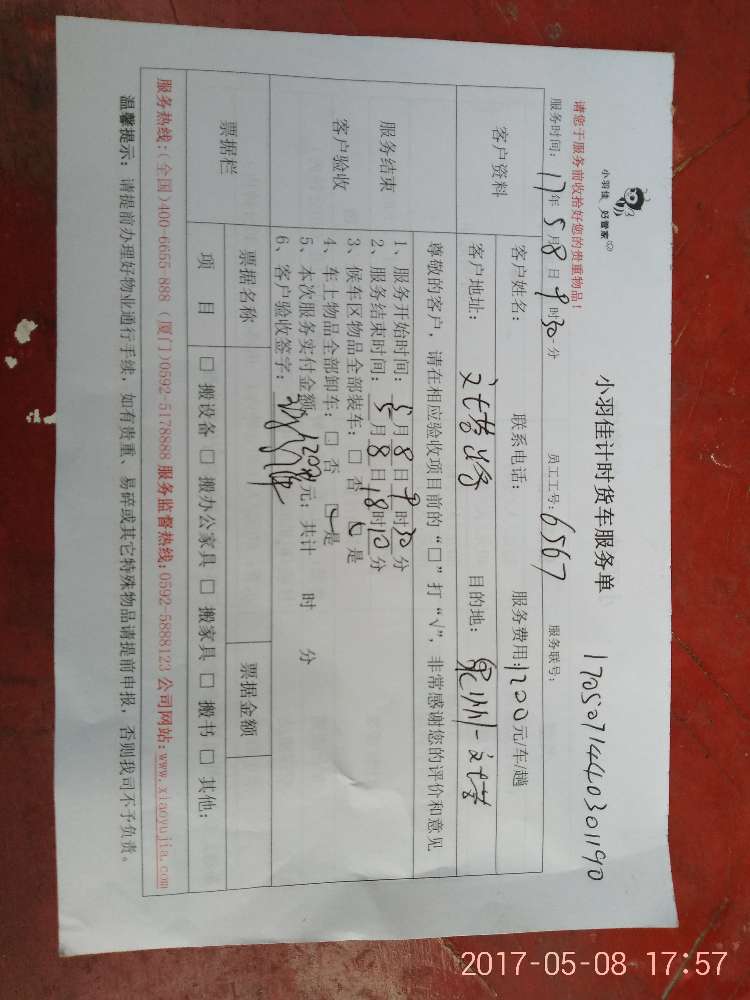 小羽佳 好管家
小羽佳计时货车服务单
17050714440301190
请您于服务前收拾好您的贵重物品！
服务时间：17年5月8日9时30分 员工工号：6567 服务联号：
客户资料
客户姓名： 联系电话： 服务费用：1200元/车/趟
客户地址： 目的地：
服务结束
客户验收
尊敬的客户，请在相应验收项目前的“□”打“√”，非常感谢您的评价和意见
1、服务开始时间：5月8日9时30分
2、服务结束时间：5月8日18时10分
3、候车区物品全部装车：□ 否 □ 是
4、车上物品全部卸车：□ 否 □ 是
5、本次服务实付金额：1200元；共计 时 分
6、客户验收签字：
票据栏
票据名称 票据金额
项 目 □ 搬设备 □ 搬办公家具 □ 搬家具 □ 搬书 □ 其他：
服务热线：(全国)400-6655-888 (厦门)0592-5178888 服务监督热线：0592-5888123 公司网站：www.xiaoyujia.com
温馨提示：请提前办理好物业通行手续，如有贵重、易碎或其它特殊物品请提前申报，否则我司不予负责。
2017-05-08 17:57